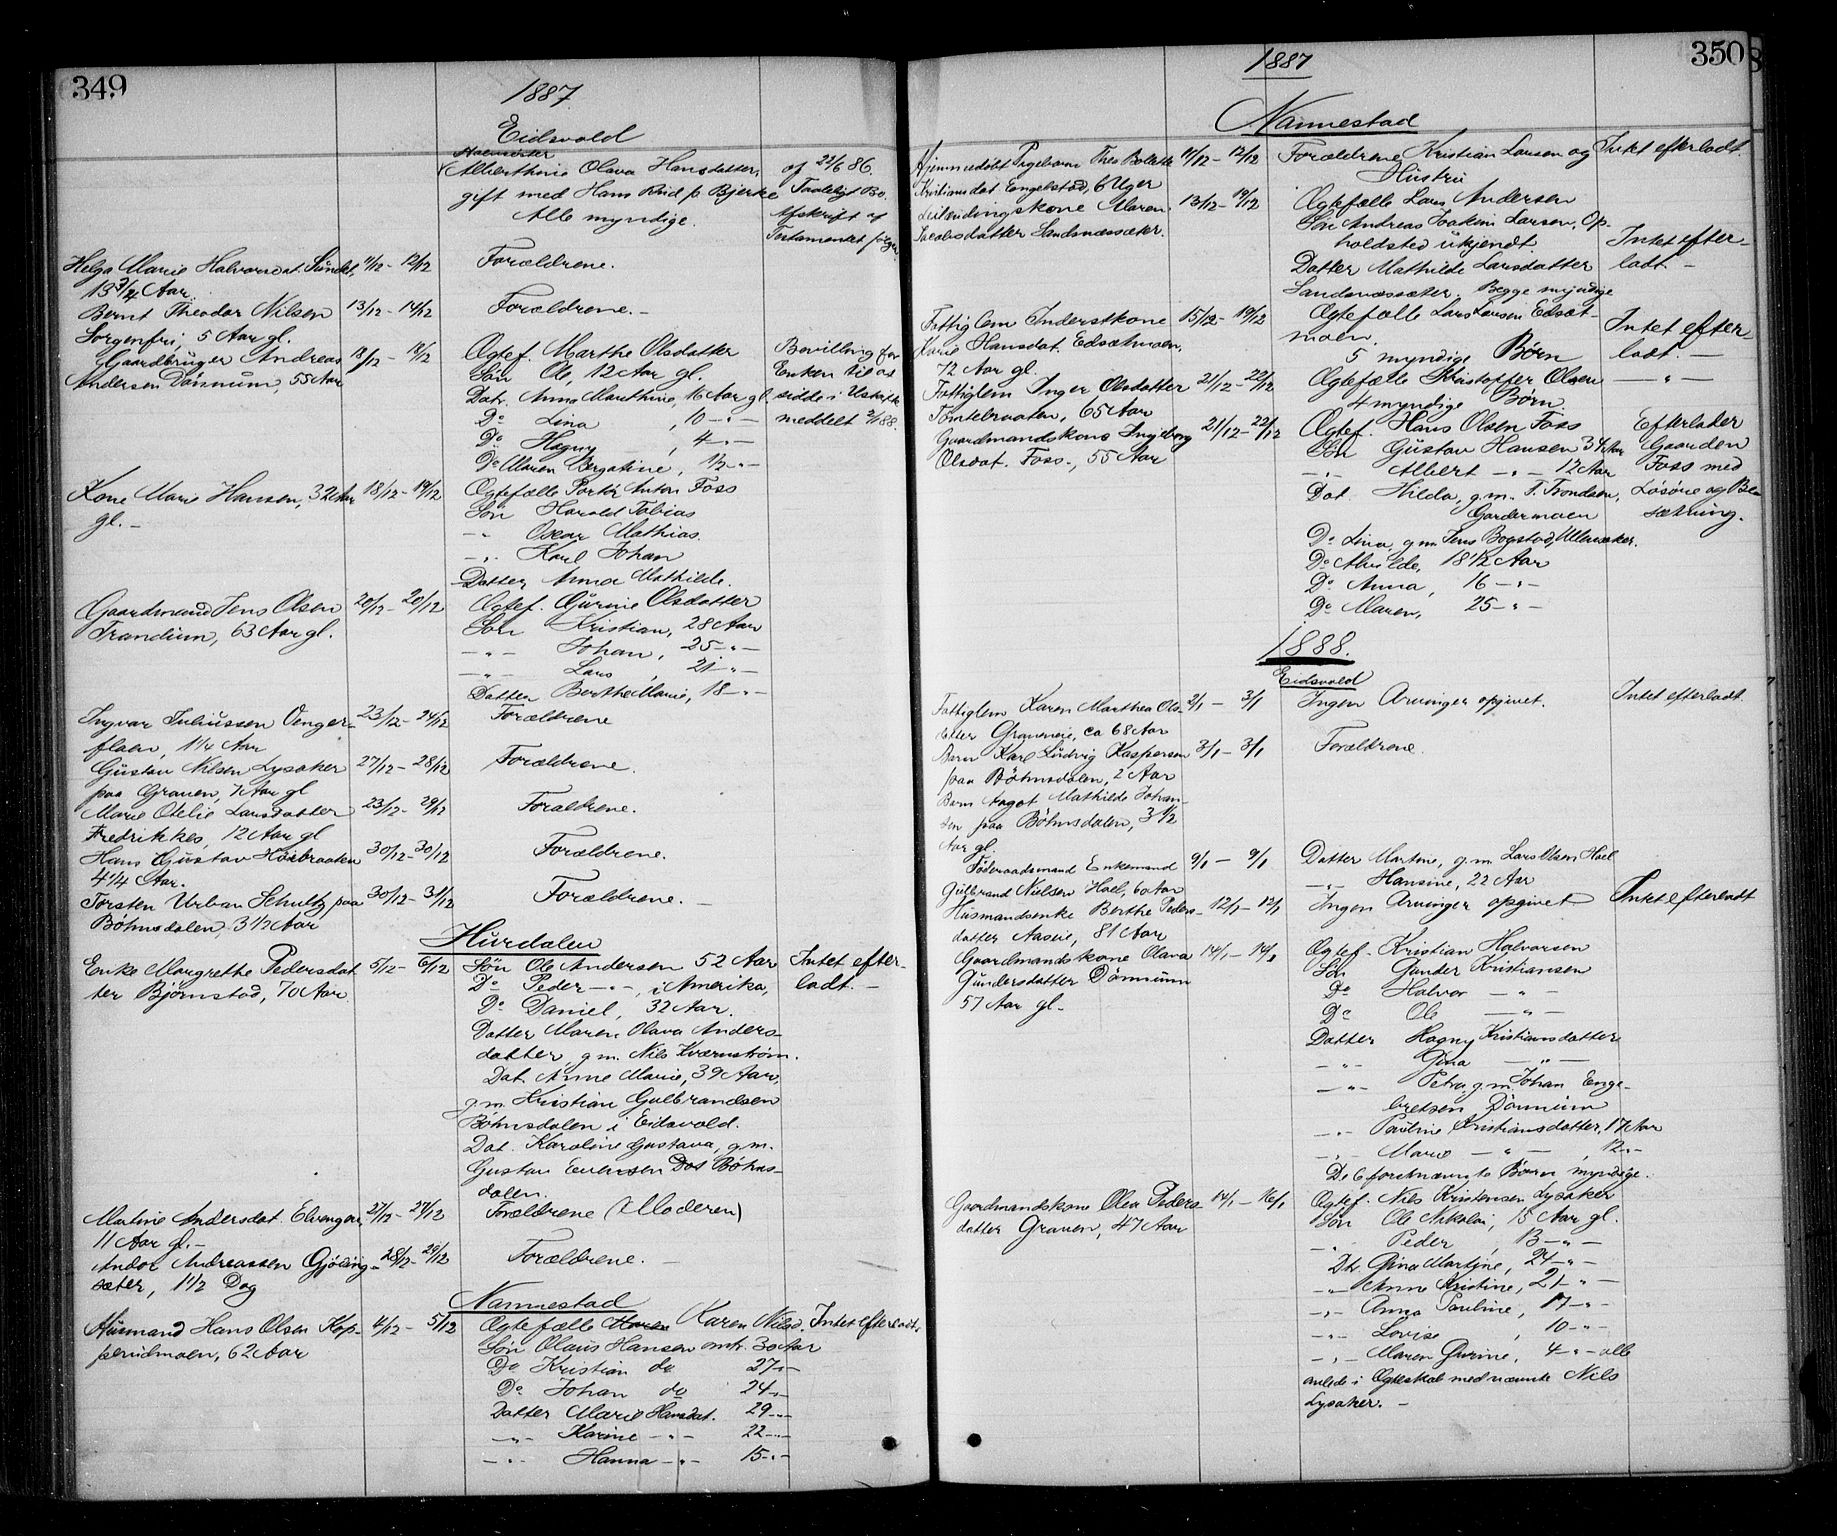 349
1887.
Eidsvold
Halvsøster
Alberthine Olava Hansdatter, af 22/6 86.
gift med Hans Ruid p. Bjerke
Alle myndige.
Afskrift af
Testamentet følger
Helga Marie Halvorsdat. Sundet, 11/12 - 12/12 Forældrene.
13 3/4 Aar.
Bernt Theodor Nilsen 13/12 - 14/12 Forældrene. -
Sorgenfri, 5 Aar gl.
Gaardbruger Andreas 18/12 - 18/12 Ægtef. Marthe Olsdatter Bevilling for
Andersen Dønnum, 55 Aar Søn Ole, 12 Aar gl. Enken til at
Datr. Anna Marthine, 16 Aar gl. sidde i Uskifte
Do Lina, 10 -"- meddelt 2/1 88.
Do Hagny, 4 -"-
Do Maren Bergatine, 1/2 -"-
Kone Marie Hansen, 32 Aar 18/12 - 19/12 Ægtefælle Portør Anton Foss
gl. - Søn Harold Tobias
-"- Oscar Mathias.
-"- Karl Johan
Datter Anna Mathilde.
Gaardmand Jens Olsen 20/12 - 20/12 Ægtef. Gurine Olsdatter
Trandum, 63 Aar gl. Søn Kristian, 28 Aar
-"- Johan, 25 -"-
-"- Lars, 21 -"-
Datter Berthe Marie, 18 -"-
Ingvar Juliussen Venger- 23/12 - 24/12 Forældrene
flaen, 1 1/4 Aar
Gustav Nilsen Lysaker 27/12 - 28/12 Forældrene.
paa Grauen, 7 Aar gl
Marie Otelie Larsdatter 23/12 - 29/12 Forældrene.
Fredrikkes, 12 Aar gl
Hans Gustav Høibraaten 30/12 - 30/12 Forældrene.
4 1/4 Aar.
Torsten Urban Schultz paa 30/12 - 31/12 Forældrene. -
Bøhnsdalen, 3 1/2 Aar
Hurdalen
Enke Margrethe Pedersdat- 5/12 - 6/12 Søn Ole Andersen 52 Aar Intet efter-
ter Bjørnstad, 70 Aar. Do Peder -"-, i Amerika, ladt. -
Do Daniel, 32 Aar.
Datter Maren Olava Anders-
datter, g.m. Nils Kværnstrøm.
Dat. Anne Marie, 39 Aar,
g.m. Kristian Gulbrandsen
Bøhnsdalen i Eidsvold.
Dat. Karoline Gustava, g.m.
Gustav Evensen Dos Bøhns-
dalen.
Martine Andersdat. Elvengen, 27/12 - 27/12 Forældrene (Moderen)
11 Aar gl. -
Andor Andreassen Gjøding- 28/12 - 29/12 Forældrene. -
sæter, 1 1/2 Dag
Nannestad
Husmand Hans Olsen Kop- 4/12 - 5/12 Ægtefælle Karen Nilsd. Intet efterladt.
perudmoen, 62 Aar Søn Olaus Hansen omtr. 30 Aar
Do Kristian do 27 -"-
Do Johan do 24 -"-
Datter Marie Hansdat. 29 -"-
-"- Karine -"- 22 -"-
-"- Hanna -"- 15 -"-
350
1887
Nannestad
Hjemmedøbt Pigebarn Thea Bolette 11/12 - 12/12 Forældrene Kristian Larsen og Intet efterladt.
Kristiansdat Engelstad, 6 Uger Hustru
Leilændingskone Maren 13/12 - 19/12 Ægtefælle Lars Andersen
Jacobsdatter Sandnæssæter. Søn Andreas Joakim Larsen, Op-
holdsted ukjendt Intet efter-
Datter Mathilde Larsdatter ladt. -
Sandnæssæter. Begge myndige
Fattiglem Inderstkone 15/12 - 19/12 Ægtefælle Lars Larsen Edsæt-
Karie Hansdat. Edsætmoen, moen. Intet efter-
72 Aar gl. 5 myndige Børn ladt. -
Fattiglem Inger Olsdatter 21/12 - 22/12 Ægtefælle Kristoffer Olsen -"-
Tømtebraaten, 65 Aar 4 myndige Børn.
Gaardmandskone Ingeborg 21/12 - 22/12 Ægtef. Hans Olsen Foss Efterlader
Olsdat. Foss, 55 Aar Søn Gustav Hansen 34 Aar Gaarden
-"- Albert -"- 12 Aar Foss med
Dat. Hilda, g.m. T. Trondsen, Løsøre og Be-
Gardermoen sætning.
Do Lina, g.m. Jens Bogstad, Ullensaker.
Do Alvilde, 18 1/2 Aar
Do Anna, 16 -"-
Do Maren, 25 -"-
1888.
Eidsvold
Fattiglem Karen Marthea Ols- 2/1 - 3/1 Ingen Arvinger opgivet. Intet efterladt
datter Graumeie, ca 68 Aar
Barn Karl Ludvig Kaspersen 3/1 - 3/1 Forældrene.
paa Bøhnsdalen, 2 Aar
Barn Aagot Mathilde Johan-
sen paa Bøhnsdalen, 3 1/2
Aar gl.
Føderaadsmand Enkemand 9/1 - 9/1 Datter Martine, g.m. Lars Olsen Hoel
Gulbrand Nielsen Hoel, 60 Aar -"- Hansine, 22 Aar
Husmandsenke Berthe Peders- 12/1 - 13/1 Ingen Arvinger opgivet Intet efterladt
datter Aaseie, 81 Aar
Gaardmandskone Olava 14/1 - 14/1 Ægtef. Kristian Halvorsen
Gundersdatter Dønnum Søn Gunder Kristiansen
57 Aar gl. Do Halvor -"-
Do Ole -"-
Datter Hagny Kristiansdatter
-"- Gina -"-
-"- Petra g.m. Johan Enge-
bretsen Dønnum
-"- Pauline Kristiansdatter, 17 Aar
-"- Marie -"-, 12 -"-
De 6 førstnævnte Børn myndige.
Gaardmandskone Olea Peders- 14/1 - 16/1 Ægtef. Nils Kristensen Lysaker
datter Grauen, 47 Aar Søn Ole Nikolai, 15 Aar gl.
-"- Peder 13 -"-
Dtr. Gina Martine, 24 -"-
-"- Anne Kristine, 21 -"-
-"- Anna Pauline, 17 -"-
-"- Lovise, 10 -"-
-"- Maren Gurine, 4 -"- alle
avlede i Ægteskab med nævnte Nils
Lysaker. -